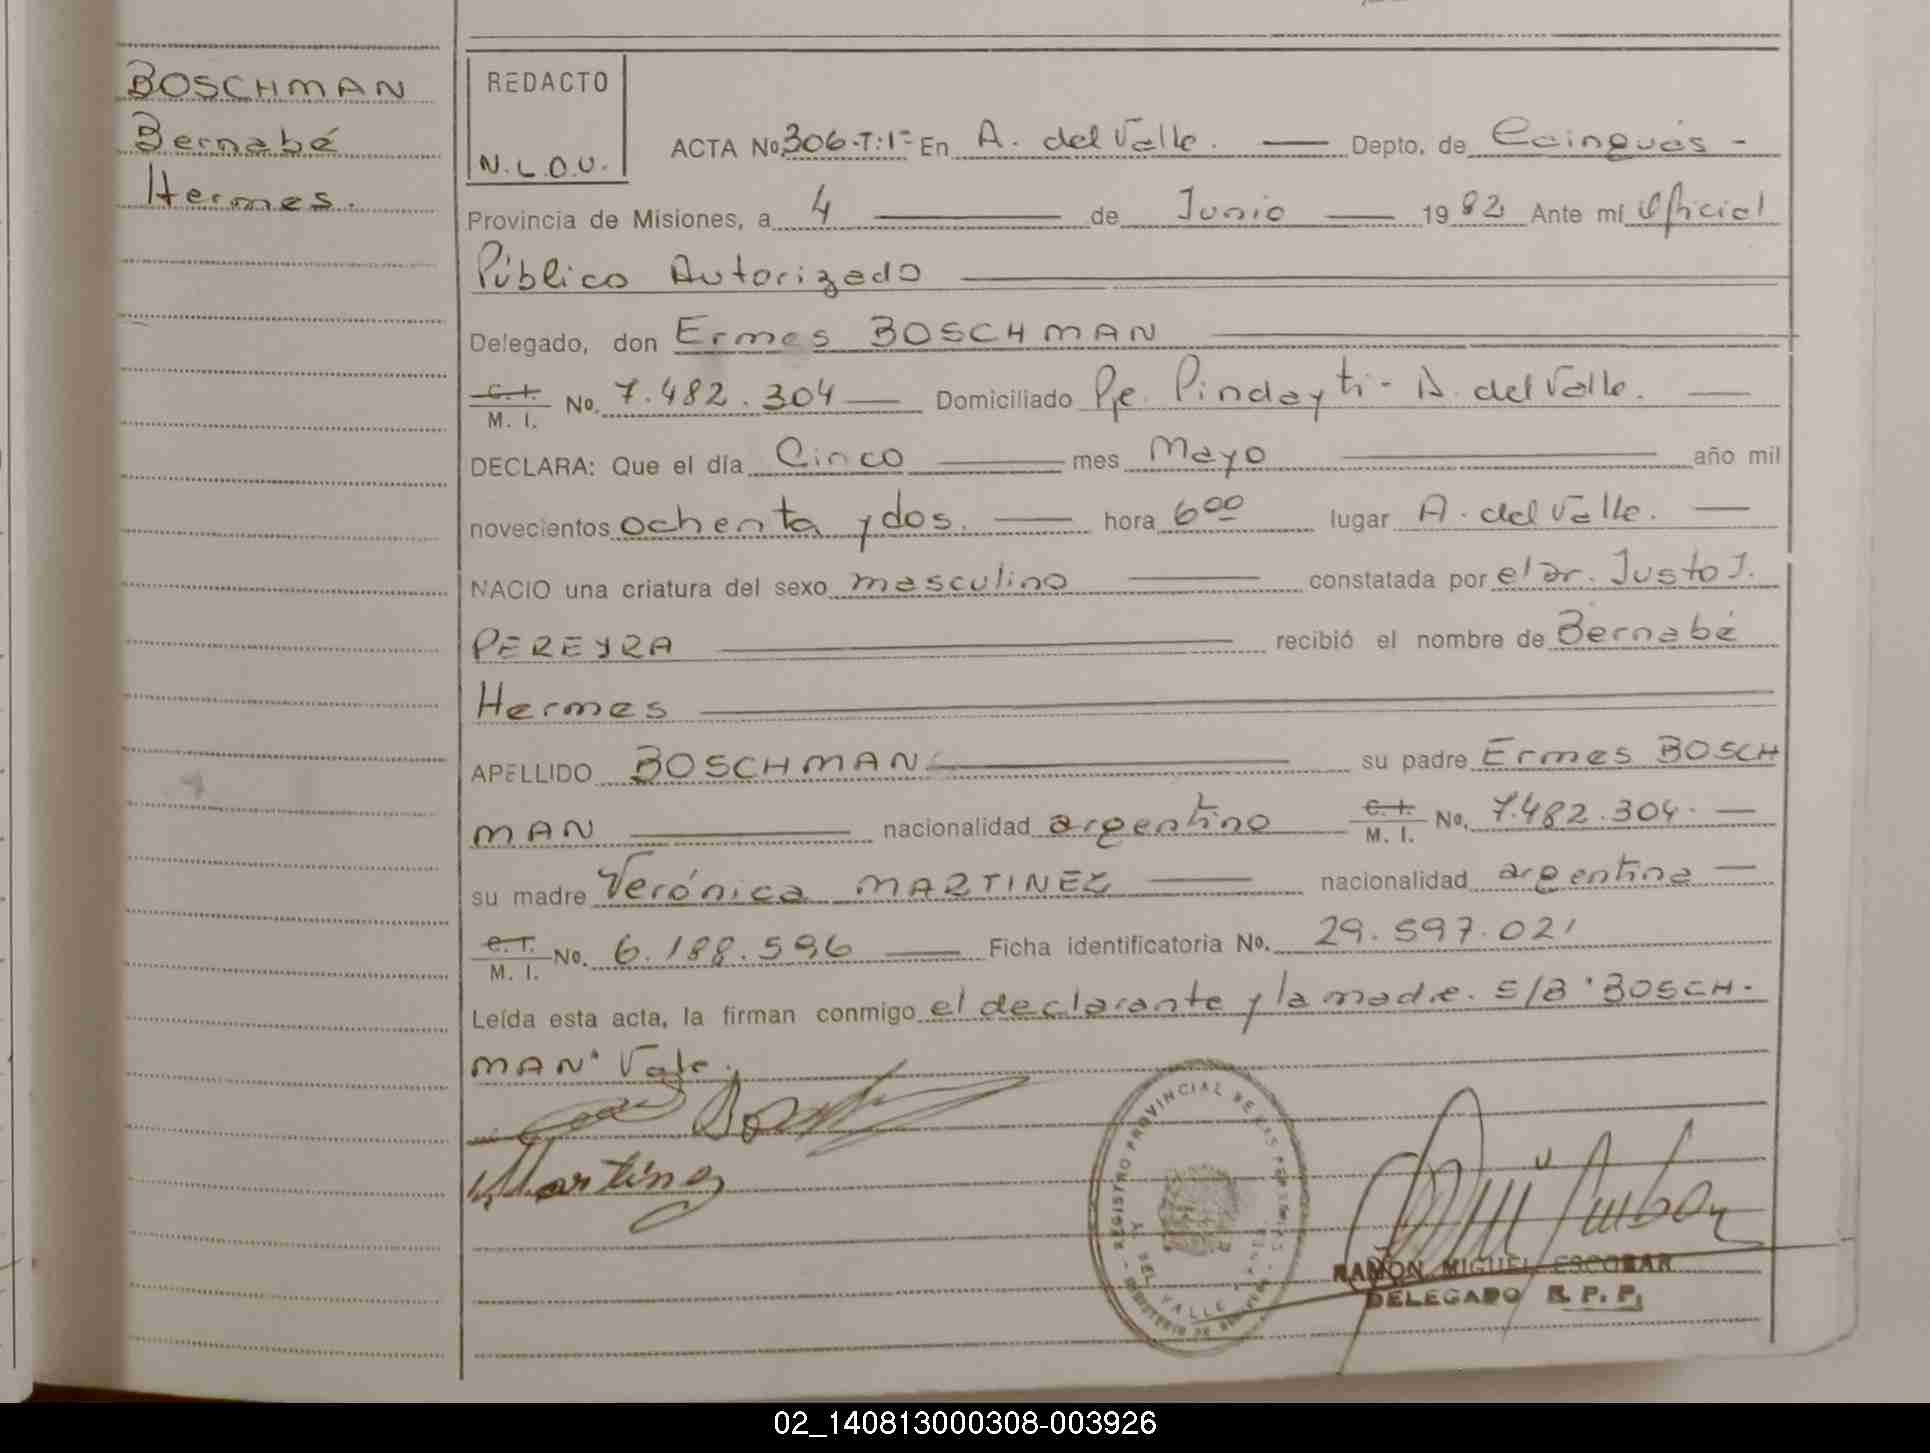 BOSCHMAN
Bernabé
Hermes.
REDACTO
N.L.O.U.
ACTA No. 306-T:1º En A. del Valle. Depto. de Cainguás -
Provincia de Misiones, a 4 de Junio 1982 Ante mí Oficial
Público Autorizado
Delegado, don Ermes BOSCHMAN
C. I. / M. I. No. 7.482.304 Domiciliado Pje. Pindayti - A. del Valle.
DECLARA: Que el día Cinco mes Mayo año mil
novecientos ochenta y dos. hora 6 00 lugar A. del Valle.
NACIO una criatura del sexo masculino constatada por el Dr. Justo J.
PEREYRA recibió el nombre de Bernabé
Hermes
APELLIDO BOSCHMAN su padre Ermes BOSCH
MAN nacionalidad argentino C. I. / M. I. No. 7.482.304.
su madre Verónica MARTINEZ nacionalidad argentina
C. I. / M. I. No. 6.188.596 Ficha identificatoria No. 29.597.021
Leída esta acta, la firman conmigo el declarante y la madre. S/B "BOSCH-
MAN" Vale.
Martinez
REGISTRO PROVINCIAL DE LAS PERSONAS
DEL VALLE
RAMON MIGUEL ESCOBAR
DELEGADO R. P. P.
02_140813000308-003926